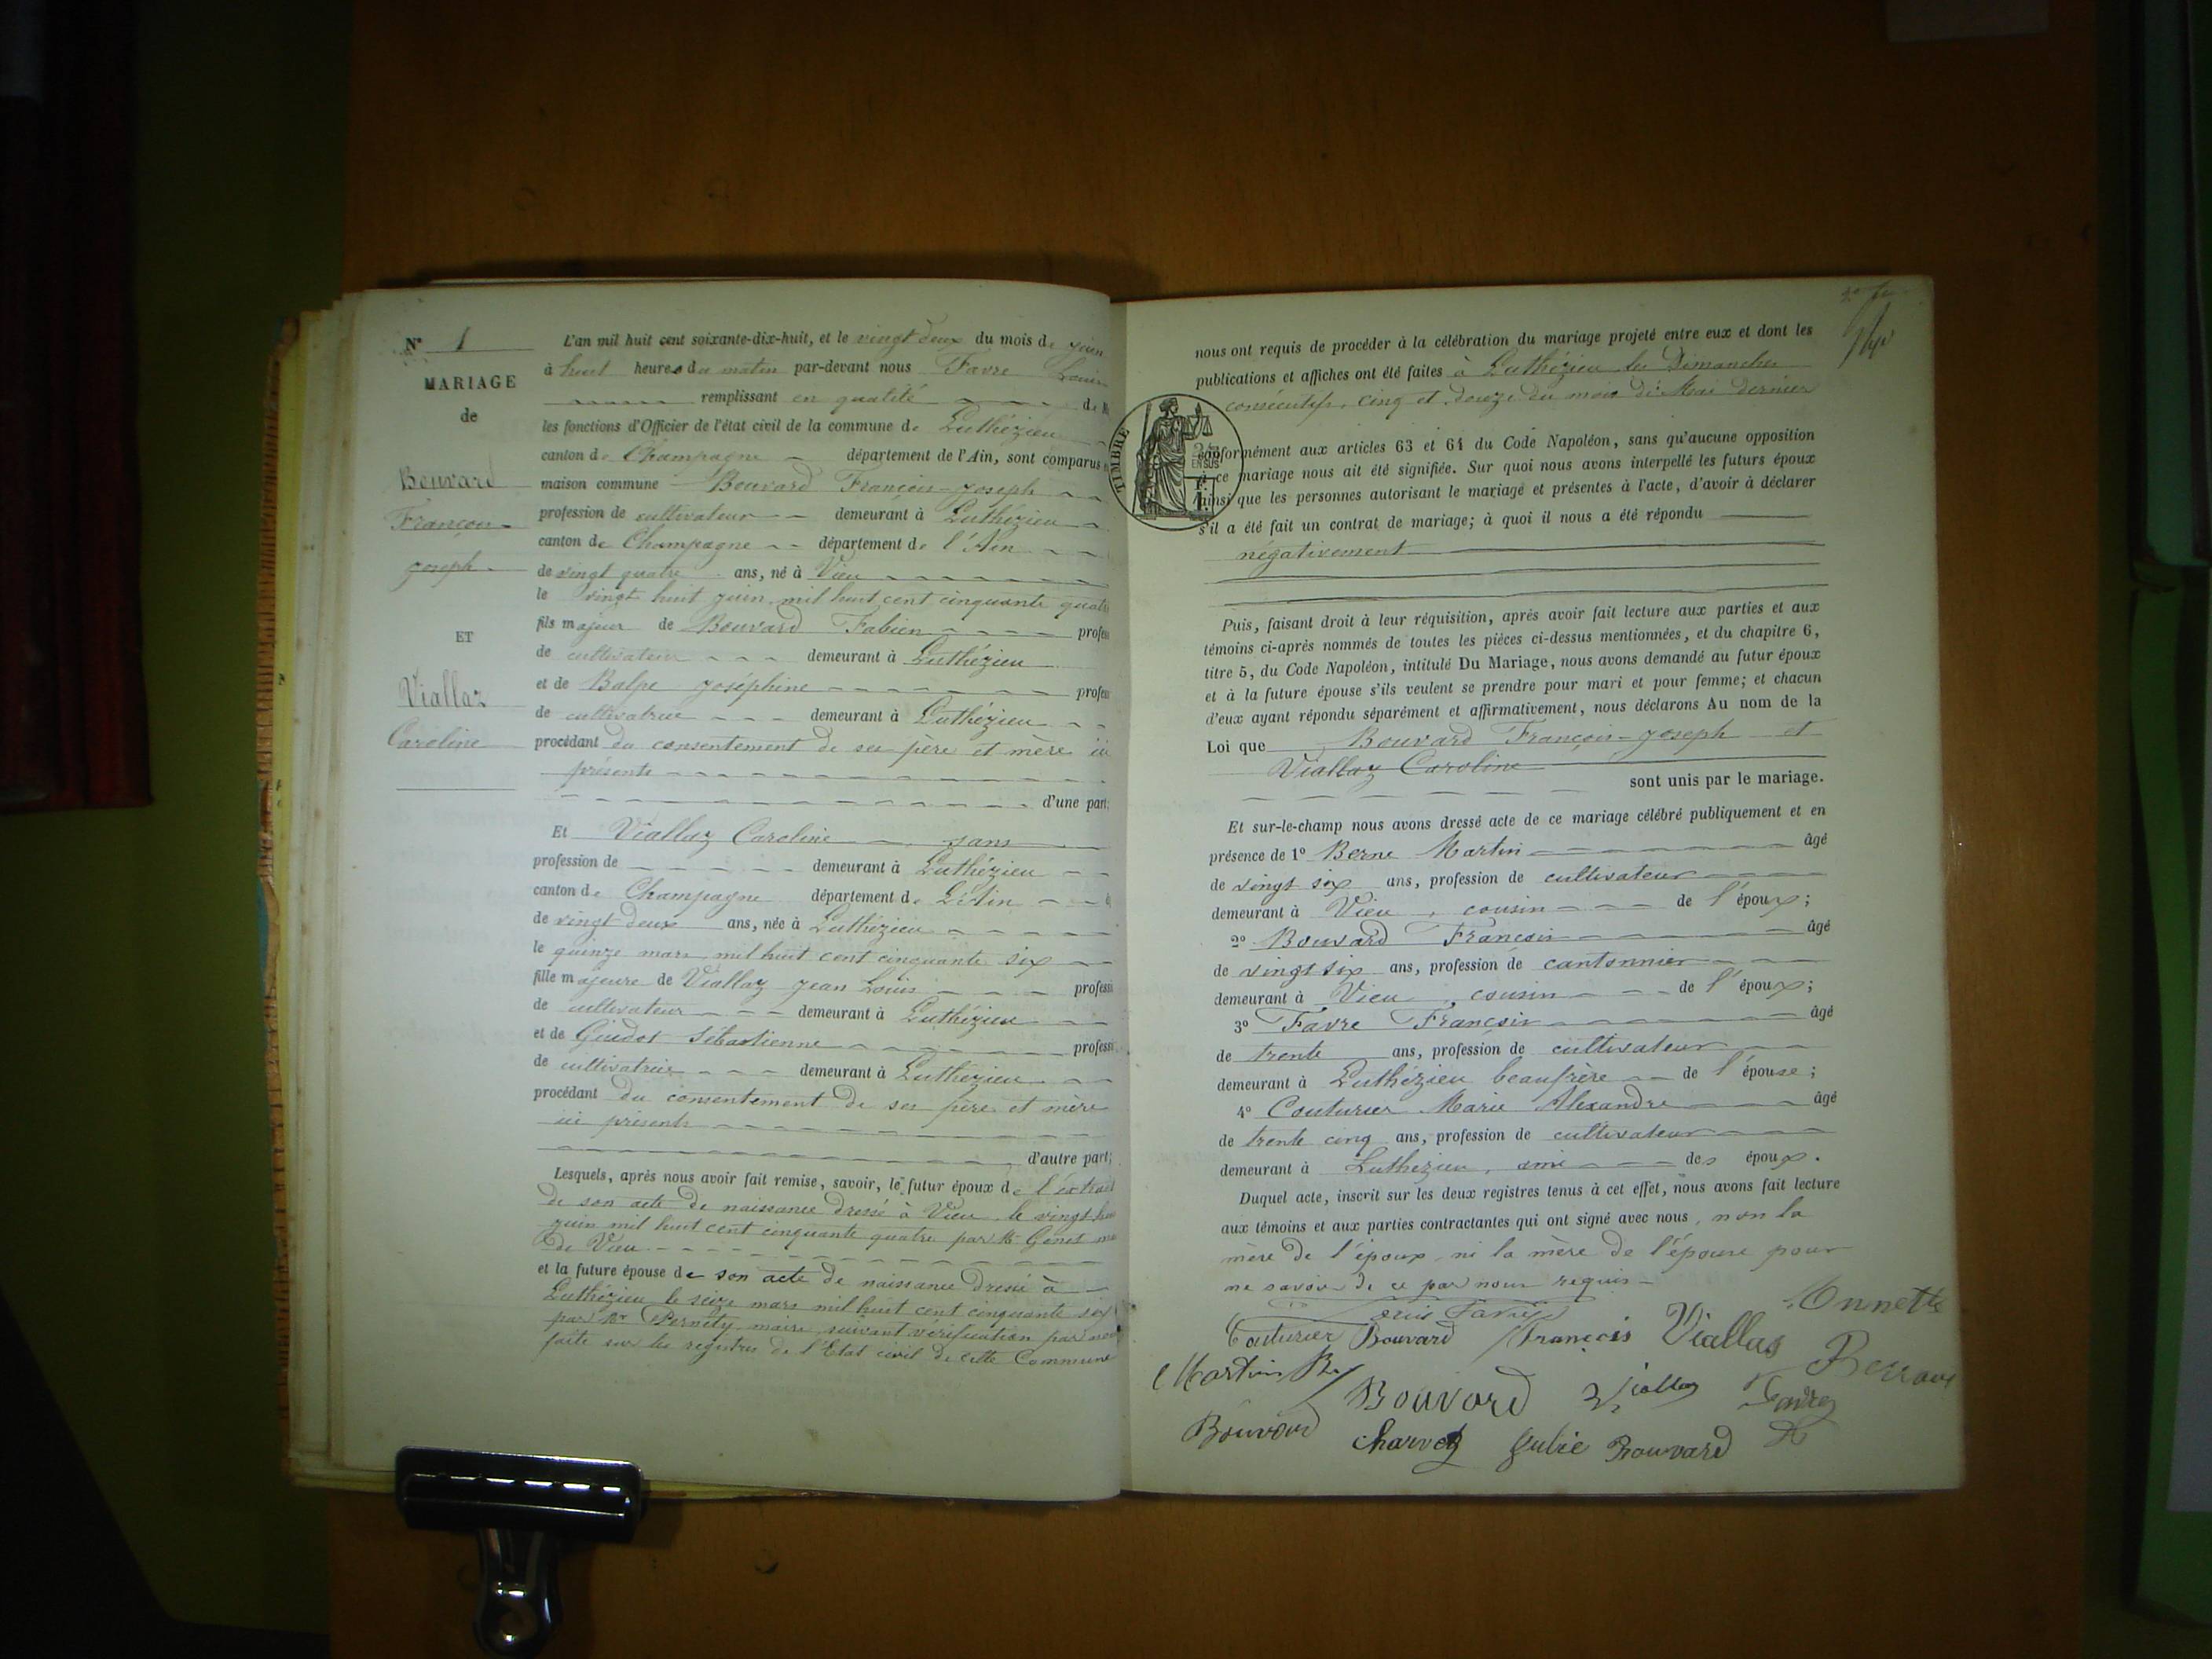 N° 1
MARIAGE
de
Bouvard
François-
joseph.
ET
Viallaz
Caroline
L'an mil huit cent soixante-dix-huit, et le vingt deux du mois de juin
à huit heures du matin par-devant nous Favre Louis
remplissant en qualité de
les fonctions d'Officier de l'état civil de la commune de Luthézieu
canton de Champagne département de l'Ain, sont comparus
maison commune Bouvard François-joseph
profession de cultivateur demeurant à Luthézieu
canton de Champagne département de l'Ain
de vingt quatre ans, né à Vieu
le vingt huit juin mil huit cent cinquante quatre
fils majeur de Bouvard Fabien profess
de cultivateur demeurant à Luthézieu
et de Balpe joséphine profess
de cultivatrice demeurant à Luthézieu
procédant du consentement de ses père et mère ici
présents
d'une part;
Et Viallaz Caroline, sans
profession de demeurant à Luthézieu
canton de Champagne département de L'Ain
de vingt deux ans, née à Luthézieu
le quinze mars mil huit cent cinquante six
fille majeure de Viallaz jean Louis professi
de cultivateur demeurant à Luthézieu
et de Guidot Sébastienne professi
de cultivatrice demeurant à Luthézieu
procédant du consentement de ses père et mère
ici présents
d'autre part;
Lesquels, après nous avoir fait remise, savoir, le futur époux de l'extrait
de son acte de naissance dressé à Vieu le vingt huit
juin mil huit cent cinquante quatre par Mr Genet
de Vieu
et la future épouse de son acte de naissance dressé à
Luthézieu le seize mars mil huit cent cinquante six
par Mr Pernéty maire suivant vérification par nous
faite sur les registres de l'Etat civil de cette Commune
nous ont requis de procéder à la célébration du mariage projeté entre eux et dont les
publications et affiches ont été faites à Luthézieu les Dimanches
consécutifs, cinq et douze du mois de Mai dernier
TIMBRE
conformément aux articles 63 et 64 du Code Napoléon, sans qu'aucune opposition
à ce mariage nous ait été signifiée. Sur quoi nous avons interpellé les futurs époux
ainsi que les personnes autorisant le mariage et présentes à l'acte, d'avoir à déclarer
s'il a été fait un contrat de mariage; à quoi il nous a été répondu
négativement
Puis, faisant droit à leur réquisition, après avoir fait lecture aux parties et aux
témoins ci-après nommés de toutes les pièces ci-dessus mentionnées, et du chapitre 6,
titre 5, du Code Napoléon, intitulé Du Mariage, nous avons demandé au futur époux
et à la future épouse s'ils veulent se prendre pour mari et pour femme; et chacun
d'eux ayant répondu séparément et affirmativement, nous déclarons Au nom de la
Loi que Bouvard François-joseph et
Viallaz Caroline
sont unis par le mariage.
Et sur-le-champ nous avons dressé acte de ce mariage célébré publiquement et en
présence de 1° Berne Martin âgé
de vingt six ans, profession de cultivateur
demeurant à Vieu, cousin de l'époux;
2° Bouvard François âgé
de vingt six ans, profession de cantonnier
demeurant à Vieu, cousin de l'époux;
3° Favre François âgé
de trente ans, profession de cultivateur
demeurant à Luthézieu beaufrère de l'épouse;
4° Couturier Marie Alexandre âgé
de trente cinq ans, profession de cultivateur
demeurant à Luthézieu, ami des époux.
Duquel acte, inscrit sur les deux registres tenus à cet effet, nous avons fait lecture
aux témoins et aux parties contractantes qui ont signé avec nous, non la
mère de l'époux, ni la mère de l'épouse pour
ne savoir de ce par nous requis
Louis Favre
Annette
Couturier Bouvard François Viallas
Martin B.
Bouvard Viallaz Favre
Bouvard Charvet Julie Bouvard